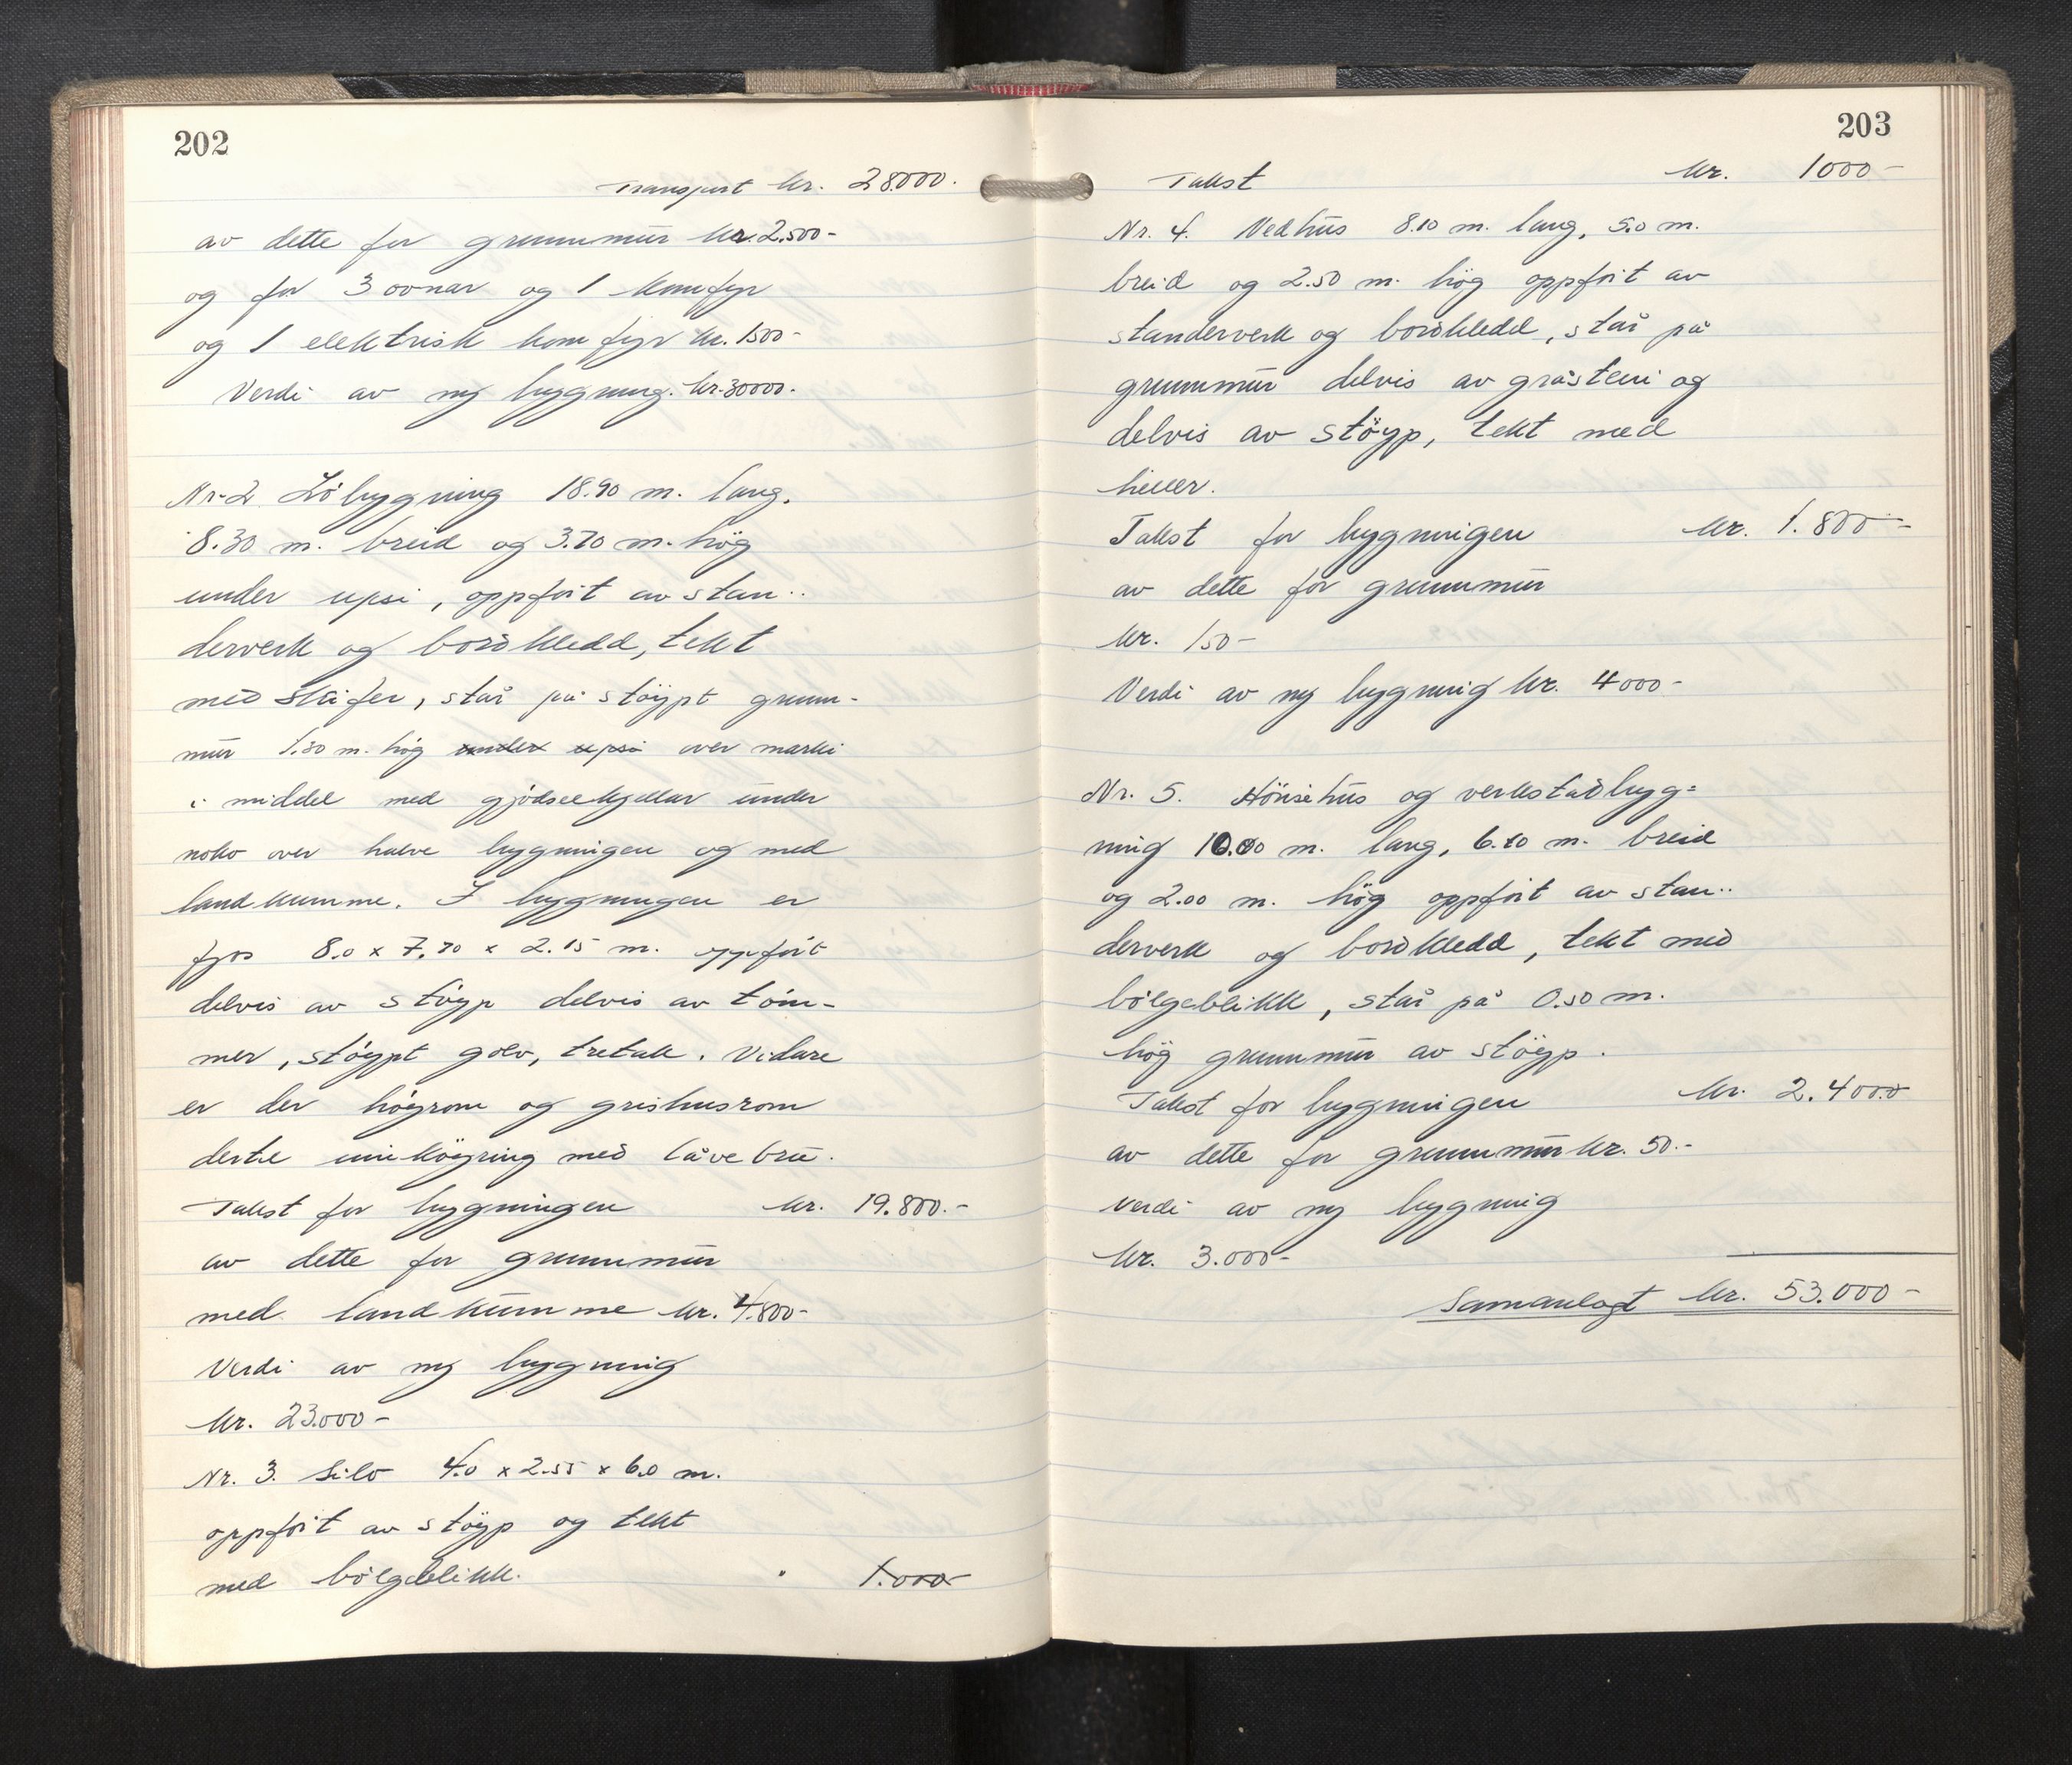 202
Transport kr. 28000.
av dette for grunnmur kr. 2.500-
og for 3 ovnar og 1 komfyr
og 1 elektrisk komfyr kr. 1500-
Verdi av ny bygning. kr. 30000.-
Nr. 2 Löbygning 18.90 m. lang.
8.30 m. breid og 3.70 m. hög
under upsi, oppfört av stan-
derverk og bordkledd, tekt
med skifer, står på stöypt grunn-
mur 1.30 m. hög under upsi over marki
i middel med gjödselkjellar under
noko over halve bygningen og med
landkumme. I bygningen er
fjos 8.0 x 7.70 x 2.15 m. oppfört
delvis av stöyp delvis av töm-
mer, stöypt golv, tretak. Vidare
er der höyrom og grishusrom
dertil innköyring med låvebru.
Takst for bygningen kr. 19.800.-
av dette for grunnmur
med landkumme kr. 4.800-
Verdi av ny bygning
kr. 23.000-
Nr. 3. Silo 4.0 x 2.55 x 6.0 m.
oppfört av stöyp og tekt
med bölgeblikk. " 1.000-
203
Takst kr. 1000-
Nr. 4. Vedhus 8.10 m. lang, 5.0 m.
breid og 2.50 m. hög oppfört av
standerverk og bordkledd, står på
grunnmur delvis av gråstein og
delvis av stöyp, tekt med
heller.
Takst for bygningen kr. 1.800-
av dette for grunnmur
kr. 150-
Verdi av ny bygning kr. 4000-
Nr. 5. Hönsehus og verkstadbyg-
ning 10.00 m. lang, 6.20 m. breid
og 2.00 m. hög oppfört av stan-
derverk og bordkledd, tekt med
bölgeblikk, står på 0.50 m.
hög grunnmur av stöyp.
Takst for bygningen kr. 2.400.-
av dette for grunnmur kr. 50.-
verdi av ny bygning
kr. 3.000-
Samanlagt kr. 53.000-